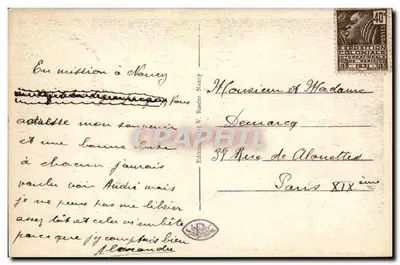 En mission à Nancy
Vous
adresse mon souvenir
et une bonne
à chacun jamais
voulu voir André mais
je ne peux pas me libérer
assez tôt et cela m'embête
parce que j'y comptais bien
Alexandre
Monsieur et Madame
Demarcq
39 Rue de Alouettes
Paris XIXème
40c
EXPOSITION
COLONIALE
INTERNATIONALE
PARIS
1931
POSTES
CPARAMA